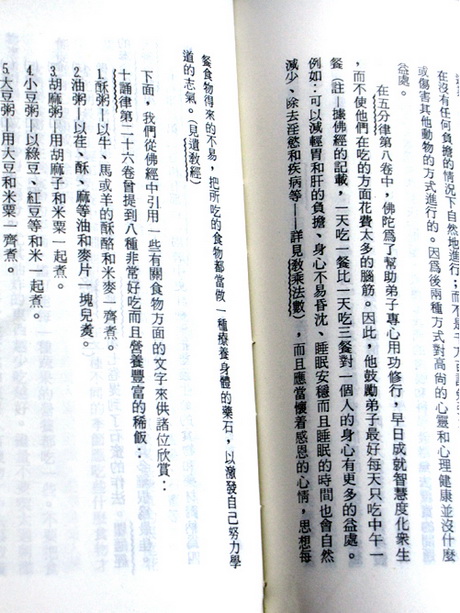 在沒有任何負擔的情況下自然地進行
或傷害其他動物的方式進行的。因爲後兩種方式對高尚的心靈和心理健康並沒什麼
益處。
在五分律第八卷中，佛陀爲了幫助弟子專心用功修行，早日成就智慧度化衆生
，而不使他們在吃的方面花費太多的腦筋。因此，他鼓勵弟子最好每天只吃中午一
餐（註—據佛經的記載，一天吃一餐比一天吃三餐對一個人的身心有更多的益處。
例如：可以減輕胃和肝的負擔、身心不易昏沈、睡眠安穩而且睡眠的時間也會自然
減少、除去淫慾和疾病等——詳見敎乘法數），而且應當懷着感恩的心情，思想每
餐食物得來的不易，把所吃的食物都當做一種療養身體的藥石，以激發自己努力學
道的志氣。（見遺敎經）
下面，我們從佛經中引用一些有關食物方面的文字來供諸位欣賞：
十誦律第二十六卷曾提到八種非常好吃而且營養豐富的稀飯：
1.酥粥—以牛、馬或羊的酥酪和米麥一齊煮。
2.油粥—以荏、酥、麻等油和麥片一塊兒煮。
3.胡麻粥—用胡麻子和米一起煮。
4.小豆粥—以綠豆、紅豆等和米一起煮。
5.大豆粥—用大豆和米粟一齊煮。